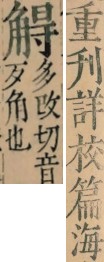 重刊詳校篇海
多改切音
歹角也